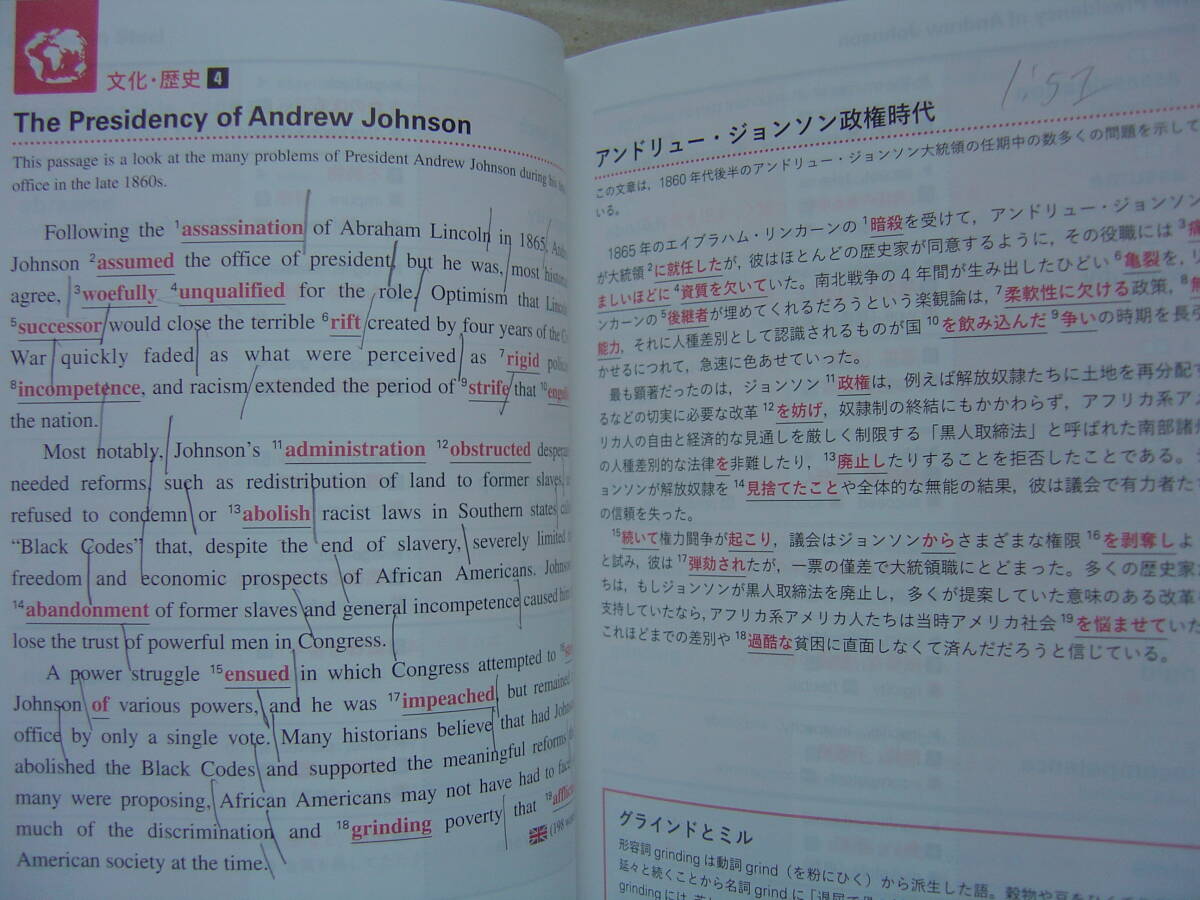 文化・歴史 4
The Presidency of Andrew Johnson
This passage is a look at the many problems of President Andrew Johnson during his
office in the late 1860s.
Following the 1assassination of Abraham Lincoln in 1865,
Johnson 2assumed the office of president, but he was, most
agree, 3woefully 4unqualified for the role. Optimism that
5successor would close the terrible 6rift created by four years of the
War quickly faded as what were perceived as 7rigid
8incompetence, and racism extended the period of 9strife that 10
the nation.
Most notably, Johnson's 11administration 12obstructed
needed reforms, such as redistribution of land to former slaves,
refused to condemn or 13abolish racist laws in Southern states
“Black Codes” that, despite the end of slavery, severely limited
freedom and economic prospects of African Americans.
14abandonment of former slaves and general incompetence caused
lose the trust of powerful men in Congress.
A power struggle 15ensued in which Congress attempted to 16
Johnson of various powers, and he was 17impeached, but remained
office by only a single vote. Many historians believe that had
abolished the Black Codes and supported the meaningful reforms
many were proposing, African Americans may not have had to face
much of the discrimination and 18grinding poverty that 19
American society at the time.
(198
1'51
アンドリュー・ジョンソン政権時代
この文章は，1860年代後半のアンドリュー・ジョンソン大統領の任期中の数多くの問題を示して
いる。
1865年のエイブラハム・リンカーンの1暗殺を受けて，アンドリュー・ジョンソン
が大統領2に就任したが，彼はほとんどの歴史家が同意するように，その役職には3
ましいほどに4資質を欠いていた。南北戦争の4年間が生み出したひどい6亀裂を，リ
ンカーンの5後継者が埋めてくれるだろうという楽観論は，7柔軟性に欠ける政策，8
能力，それに人種差別として認識されるものが国10を飲み込んだ9争いの時期を長引
かせるにつれて，急速に色あせていった。
最も顕著だったのは，ジョンソン11政権は，例えば解放奴隷たちに土地を再分配す
るなどの切実に必要な改革12を妨げ，奴隷制の終結にもかかわらず，アフリカ系アメ
リカ人の自由と経済的な見通しを厳しく制限する「黒人取締法」と呼ばれた南部諸
の人種差別的な法律を非難したり，13廃止したりすることを拒否したことである。
ョンソンが解放奴隷を14見捨てたことや全体的な無能の結果，彼は議会で有力者た
の信頼を失った。
15続いて権力闘争が起こり，議会はジョンソンからさまざまな権限16を剥奪しよ
と試み，彼は17弾劾されたが，一票の僅差で大統領職にとどまった。多くの歴史家
ちは，もしジョンソンが黒人取締法を廃止し，多くが提案していた意味のある改革
支持していたなら，アフリカ系アメリカ人たちは当時アメリカ社会19を悩ませていた
これほどまでの差別や18過酷な貧困に直面しなくて済んだだろうと信じている。
グラインドとミル
形容詞grindingは動詞grind（を粉にひく）から派生した語。穀物や豆を
延々と続くことから名詞grindに「退屈
grindingには，